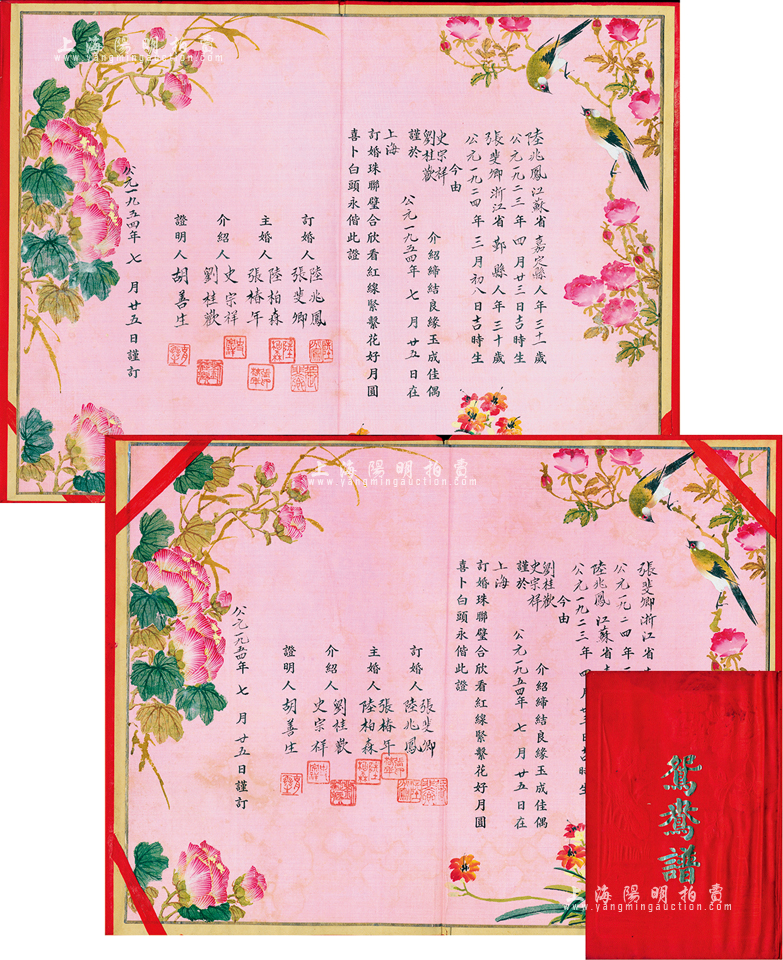 上海陽明拍賣
www.yangmingauction.com
陸兆鳳江蘇省嘉定縣人年三十一歲
公元一九二三年四月廿三日吉時生
張斐卿浙江省鄞縣人年三十歲
公元一九二四年三月初八日吉時生
今由
史宗祥
劉桂歡
介紹締結良緣玉成佳偶
謹於
公元一九五四年七月廿五日在
上海
訂婚珠聯璧合欣看紅線緊繫花好月圓
喜卜白頭永偕此證
訂婚人
陸兆鳳
張斐卿
主婚人
陸柏森
張椿年
介紹人
史宗祥
劉桂歡
證明人
胡善生
公元一九五四年七月廿五日謹訂
上海陽明拍賣
www.yangmingauction.com
張斐卿浙江省
公元一九二四年
陸兆鳳江蘇省
公元一九二三年四月廿三日吉時生
今由
劉桂歡
史宗祥
介紹締結良緣玉成佳偶
謹於
公元一九五四年七月廿五日在
上海
訂婚珠聯璧合欣看紅線緊繫花好月圓
喜卜白頭永偕此證
訂婚人
張斐卿
陸兆鳳
主婚人
張椿年
陸柏森
介紹人
劉桂歡
史宗祥
證明人
胡善生
公元一九五四年七月廿五日謹訂
鴛鴦譜
上海陽明拍賣
www.yangmingauction.com